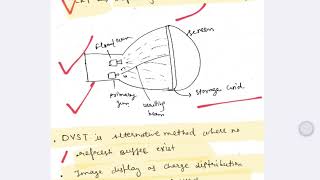 Flood Gun
Screen
Primary
Gun
writing
beam
Storage Grid
• DVST is alternative method where no
refresh Buffer exist
• Image display as charge distribution